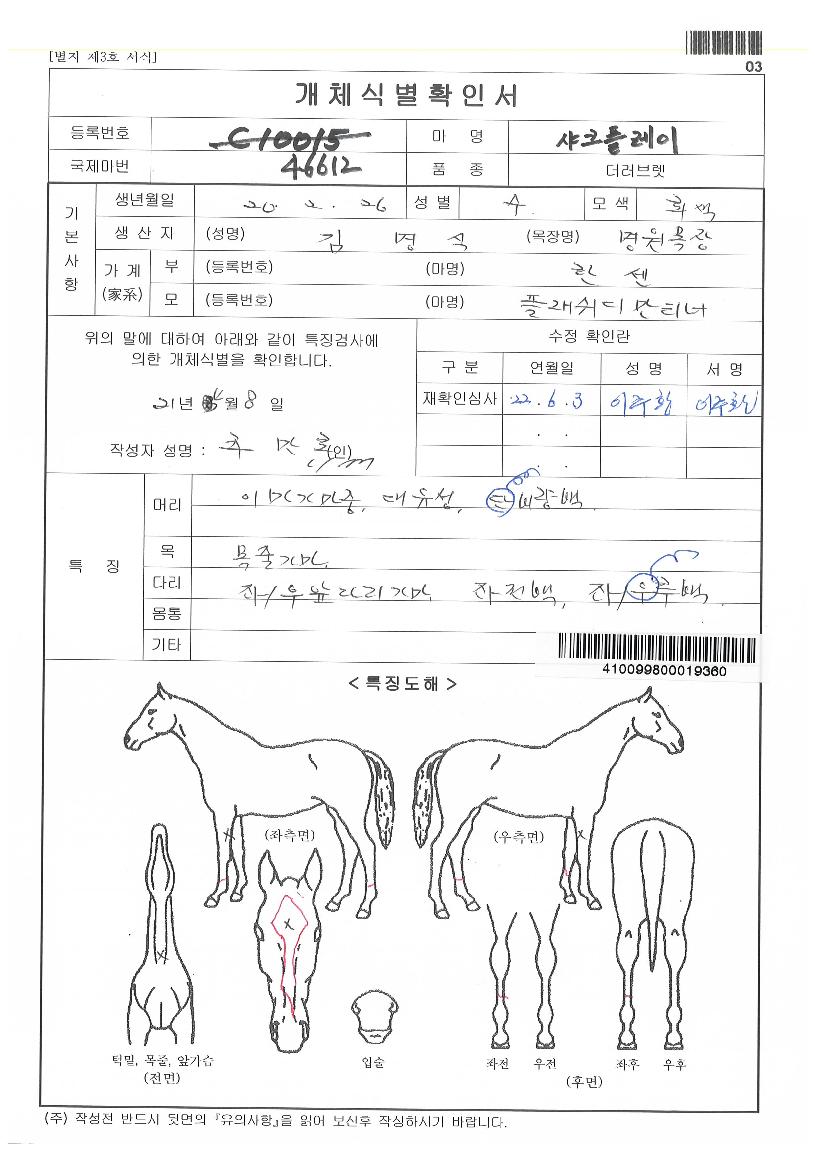 [별지 제3호 서식]
03
개체식별확인서
등록번호 C10015 마 명 샤크플레이
국제마번 46612 품 종 더러브렛
기본사항
생년월일 20. 2. 26 성별 수 모색 회색
생산지 (성명) 김 명 석 (목장명) 명원목장
가계(家系) 부 (등록번호) (마명) 한 센
모 (등록번호) (마명) 플래쉬디만티너
위의 말에 대하여 아래와 같이 특징검사에
의한 개체식별을 확인합니다.
21년 4월 8일
작성자 성명 : (인)
수정 확인란
구 분 연월일 성 명 서 명
재확인심사 22.6.3
특 징
머리
목 목줄가마.
다리 좌/우앞다리가마. 좌전백, 좌/우후백.
몸통
기타
410099800019360
<특징도해>
(좌측면)
(우측면)
턱밑, 목줄, 앞가슴
(전면)
입술
좌전 우전 좌후 우후
(후면)
(주) 작성전 반드시 뒷면의 『유의사항』을 읽어 보신후 작성하시기 바랍니다.